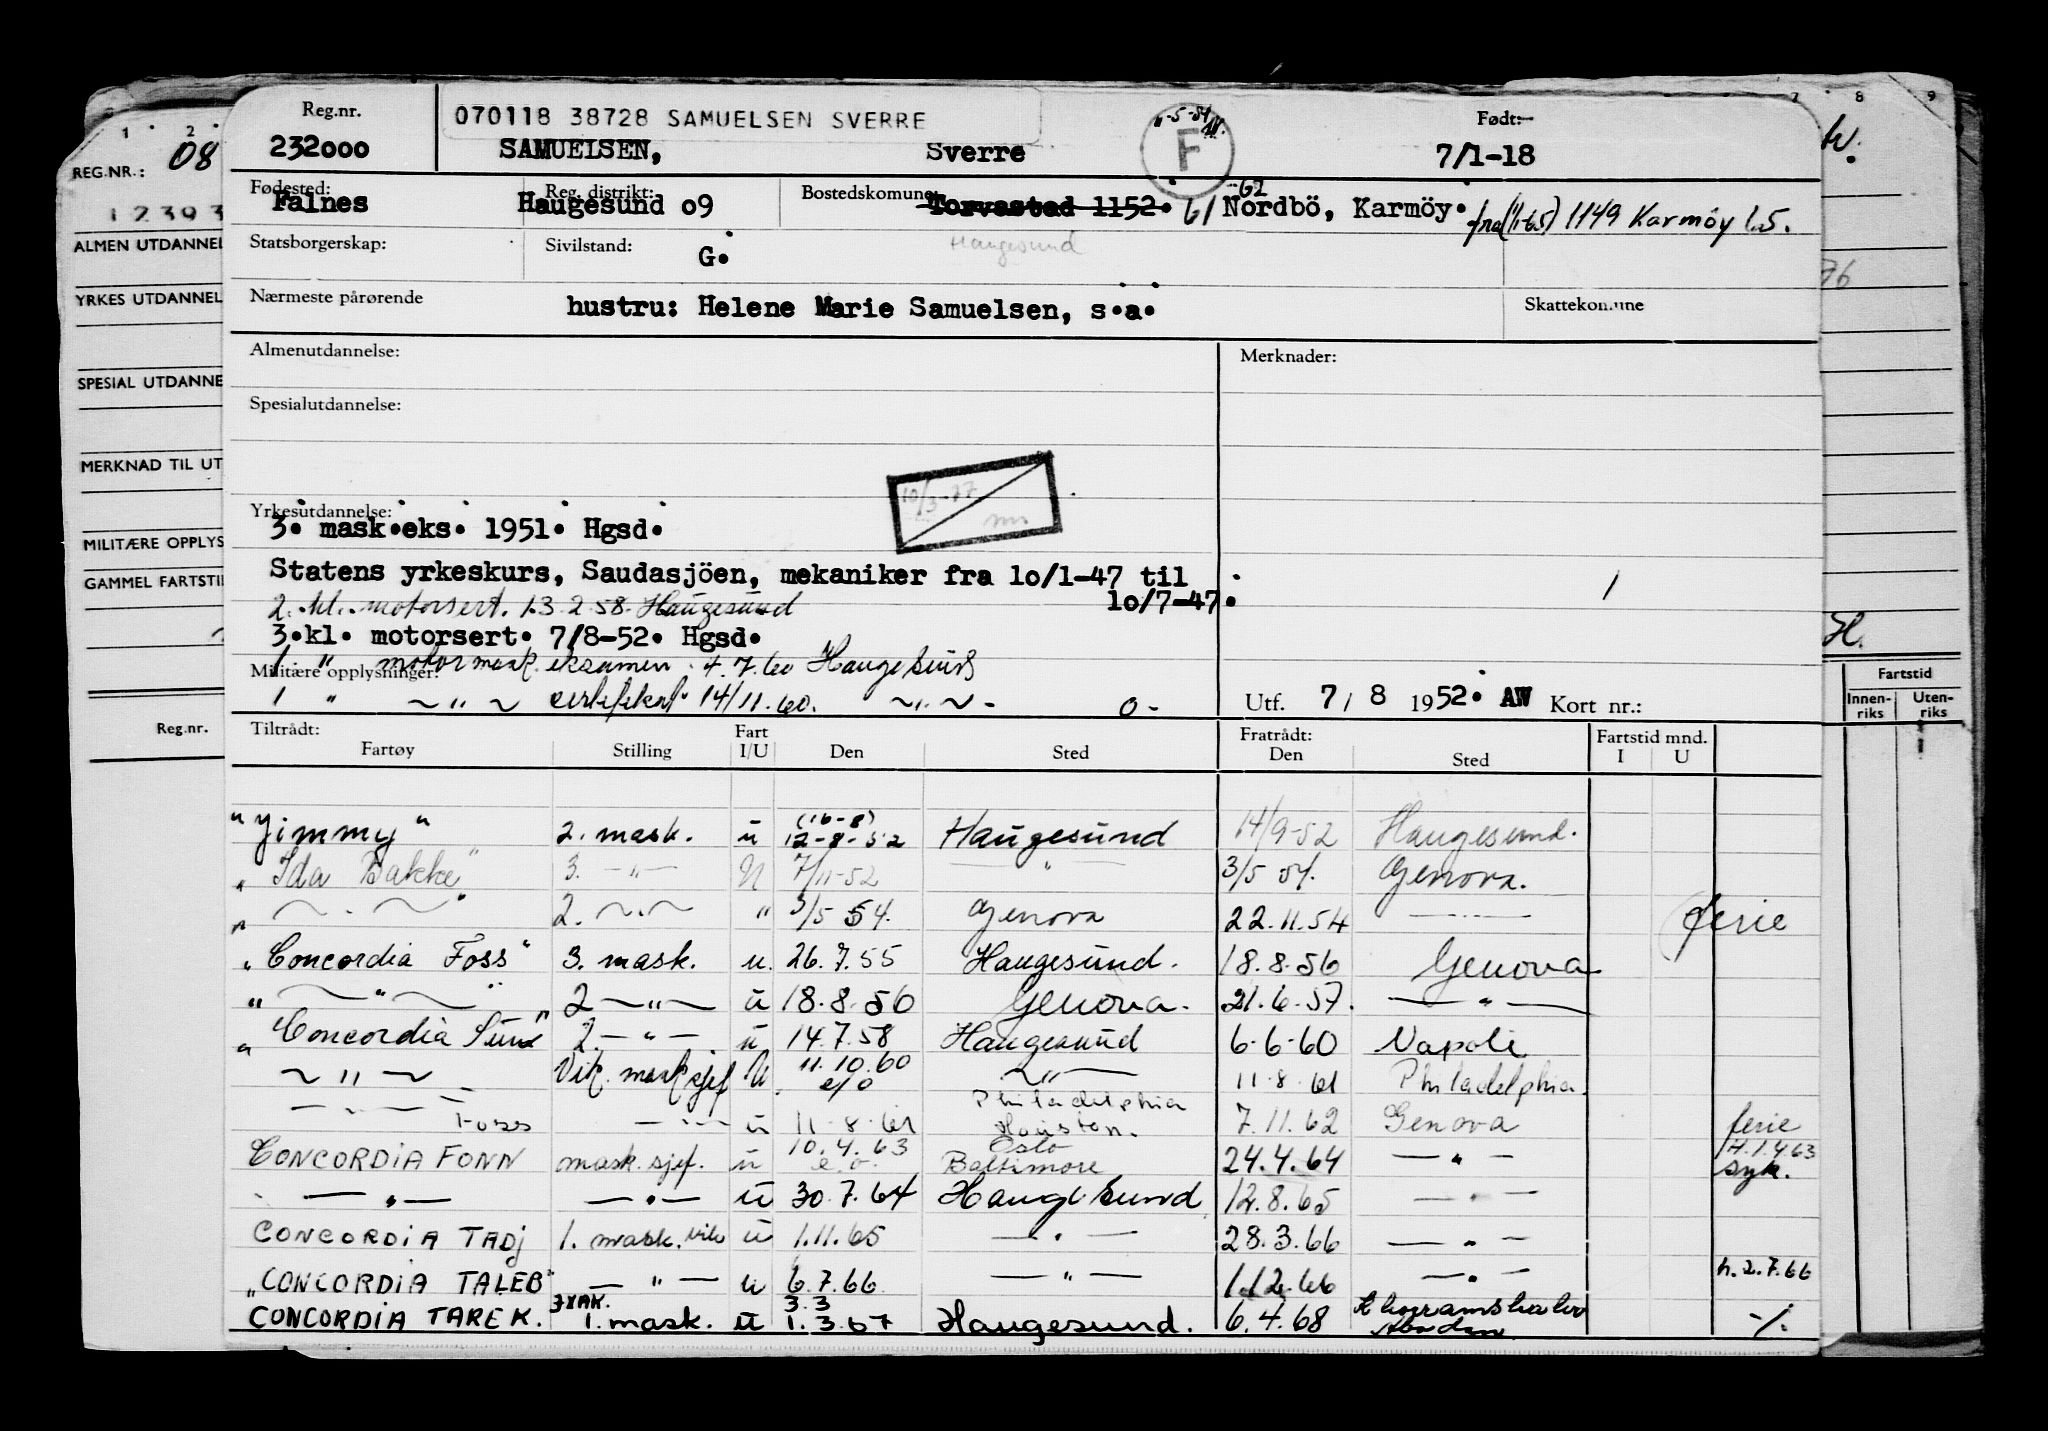 1 2
REG.NR.: 08
12393
ALMEN UTDANNEL
YRKES UTDANNEL
SPESIAL UTDANNE
MERKNAD TIL UT
MILITÆRE OPPLYS
GAMMEL FARTSTI
Reg.nr.
7 8 9
W.
76
H.
Fartstid
Innen-riks Uten-riks
Reg.nr. 070118 38728 SAMUELSEN SVERRE 11-5-54 F Født:
232000 SAMUELSEN, Sverre 7/1-18
Fødested: Reg. distrikt: Bostedskomune: 62
Falnes Haugesund o9 Torvastad 1152. 61 Nordbö, Karmöy. fra (1/1-65) 1149 Karmöy l.5.
Statsborgerskap: Sivilstand: G. Haugesund
Nærmeste pårørende hustru: Helene Marie Samuelsen, s.a. Skattekomune
Almenutdannelse: Merknader:
Spesialutdannelse:
10/3-77
Yrkesutdannelse:
3. mask.eks. 1951. Hgsd.
Statens yrkeskurs, Saudasjöen, mekaniker fra lo/1-47 til
2. kl. motorsert. 13.2.58. Haugesund lo/7-47.
3.kl. motorsert. 7/8-52. Hgsd.
1 " motormask. eksamen. 4.7.60 Haugesund
Militære opplysninger:
1 " ~ " ~ certifikat 14/11.60. ~ " ~ - 0-
Utf. 7/8 1952. AW Kort nr.:
Tiltrådt: Fart Fratrådt: Fartstid mnd.
Fartøy Stilling I/U Den Sted Den Sted I U
"Jimmy" 2. mask. u (16-8) 12-8-52 Haugesund 14/9-52 Haugesund.
"Ida Bakke" 3. — " — U 7/11-52 — " — 3/5 54. Genova.
" ~ . ~ " 2. ~ . ~ " 3/5 54. Genova 22.11.54 — ferie
"Concordia Foss" 3. mask. u. 26.7.55 Haugesund. 18.8.56 Genova
" ~ " ~ " 2 ~ " ~ u 18.8.56 Genova. 21.6.57. — " —
"Concordia Sun" 2. — " — u 14.7.58 Haugesund 6.6.60 Napoli
~ " ~ Vik. mask sjef U 11.10.60 e/o ~ " — 11.8.61 Philadelphia.
— " — Foss — " — u 11.8.61 Philadelphia Houston. 7.11.62 Genova ferie
CONCORDIA FONN mask. sjef. u 10.4.63 e.o. Oslo Baltimore 24.4.64 — " — H.1.4.63 syk.
— " — — " — u 30.7.64 Haugesund 12.8.65 — " —
CONCORDIA TADJ 1. mask. vik u 1.11.65 — " — 28.3.66 — " —
"CONCORDIA TALEB" — " — u 6.7.66 — " — 1.12.66 — " — h.2.7.66
CONCORDIA TAREK. 1. mask. u 3.3 1.3.67 Haugesund. 6.4.68 -/.